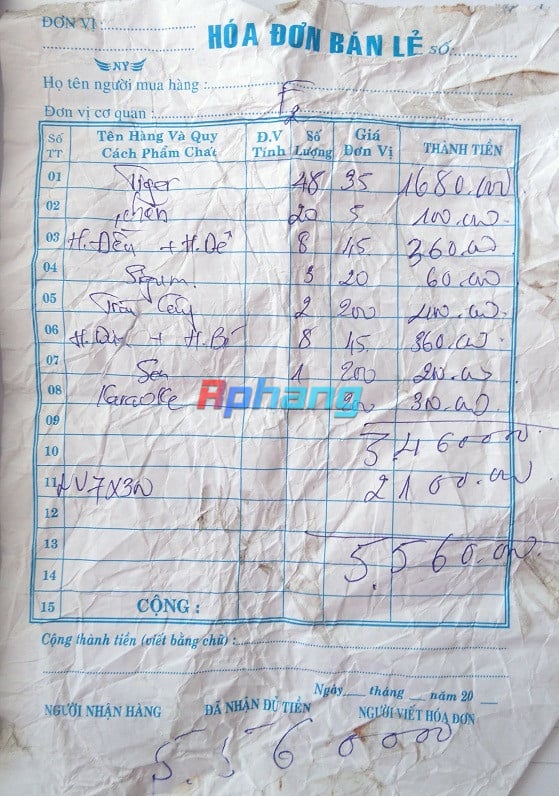 ĐƠN VỊ :
HÓA ĐƠN BÁN LẺ SỐ:
NY
Họ tên người mua hàng :
Đơn vị cơ quan : F2
Số TT Tên Hàng Và Quy Cách Phẩm Chất Đ.V Tính Số Lượng Giá Đơn Vị THÀNH TIỀN
01 Tiger 48 35 1680.000
02 20 5 100.000
03 8 45 360.000
04 3 20 60.000
05 Trái Cây 2 200 400.000
06 8 45 360.000
07 1 200 200.000
08 Karaoke 300.000
Rphang
09
10 3460000
11 NV7X300 2100.000
12
13
14 5.560.000
15 CỘNG :
Cộng thành tiền (viết bằng chữ) :
Ngày tháng năm 20
NGƯỜI NHẬN HÀNG ĐÃ NHẬN ĐỦ TIỀN NGƯỜI VIẾT HÓA ĐƠN
5.560000